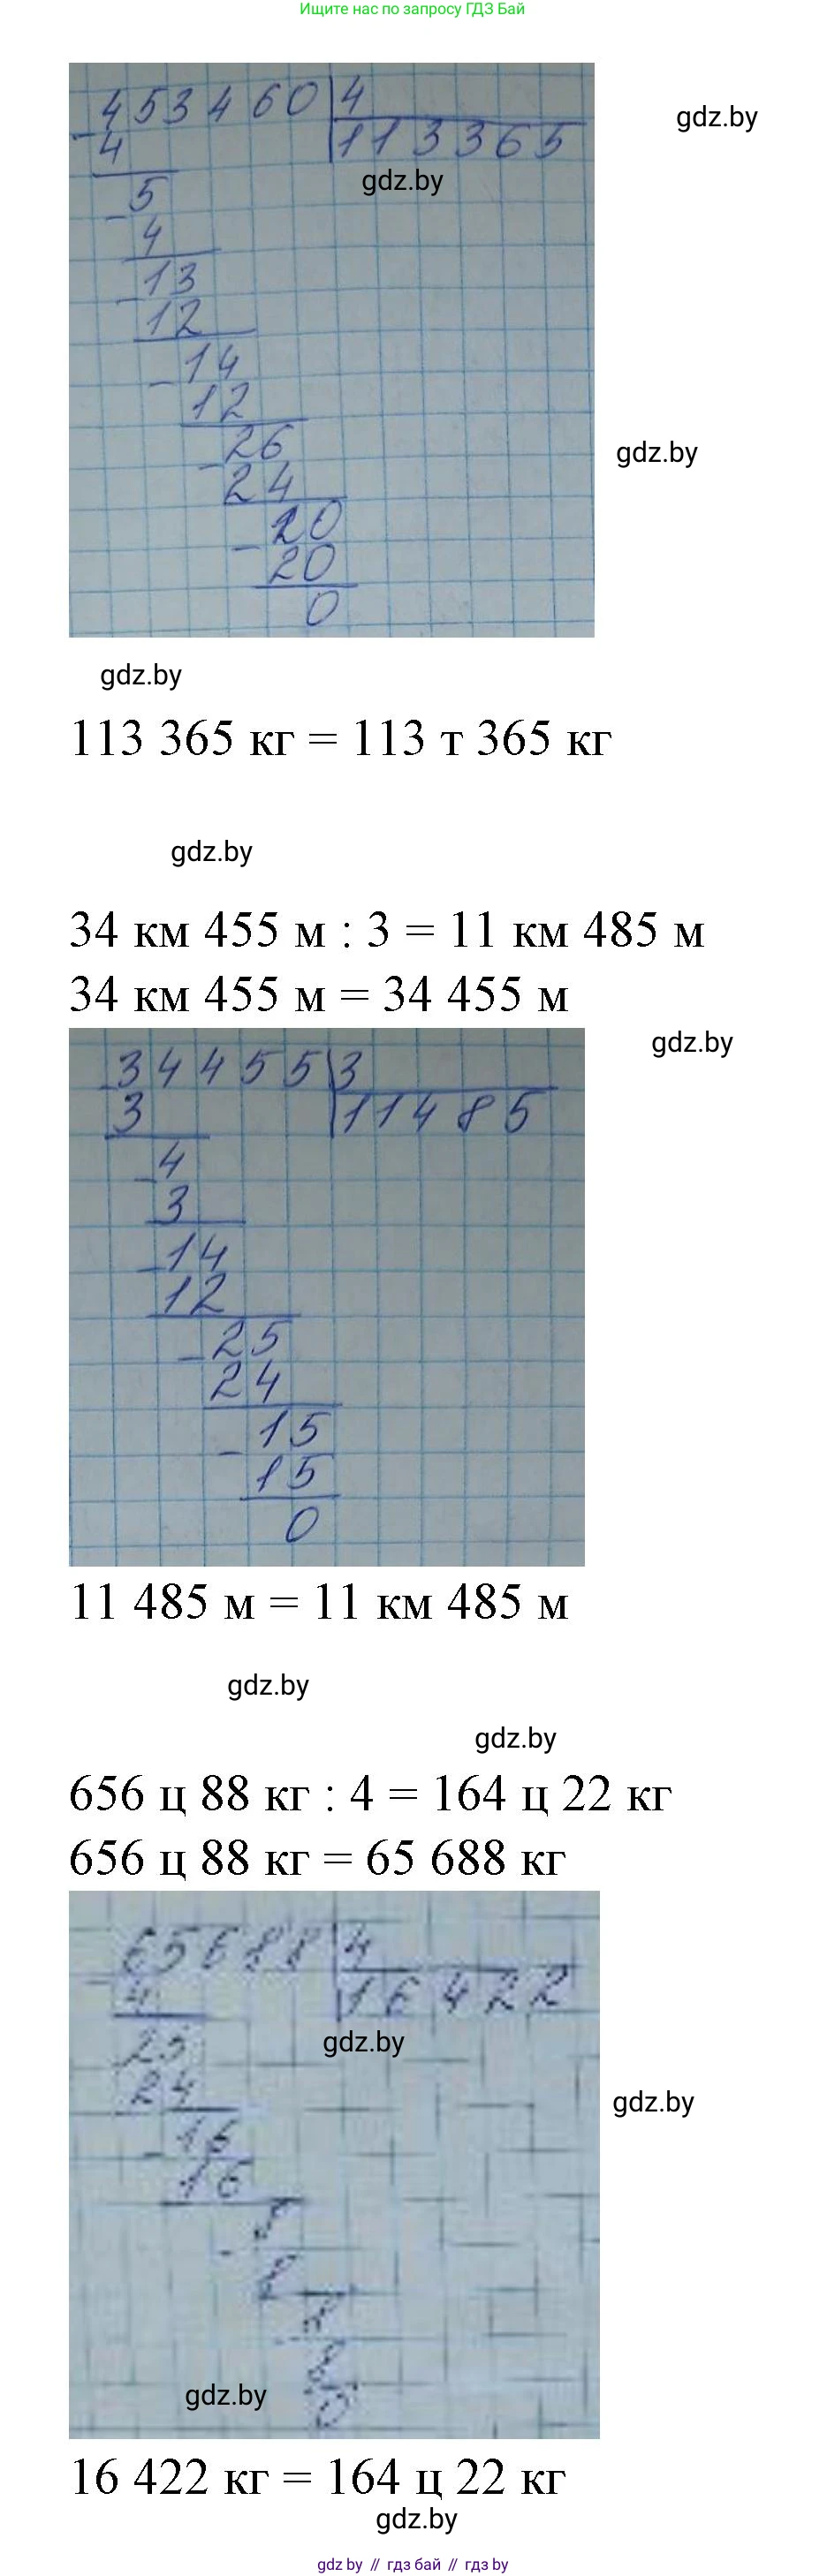 Ищите нас по запросу ГДЗ Бай
453460 4
gdz.by
4 113365
gdz.by
5
4
13
12
14
12
26
gdz.by
24
20
20
0
gdz.by
113 365 кг = 113 т 365 кг
gdz.by
34 км 455 м : 3 = 11 км 485 м
34 км 455 м = 34 455 м
gdz.by
34455 3
3 11485
4
3
14
12
25
24
15
15
0
11 485 м = 11 км 485 м
gdz.by
gdz.by
656 ц 88 кг : 4 = 164 ц 22 кг
656 ц 88 кг = 65 688 кг
65688 4
4 16422
gdz.by
25
24
gdz.by
16
16
8
8
8
8
gdz.by
0
16 422 кг = 164 ц 22 кг
gdz.by
gdz by // гдз бай // гдз by